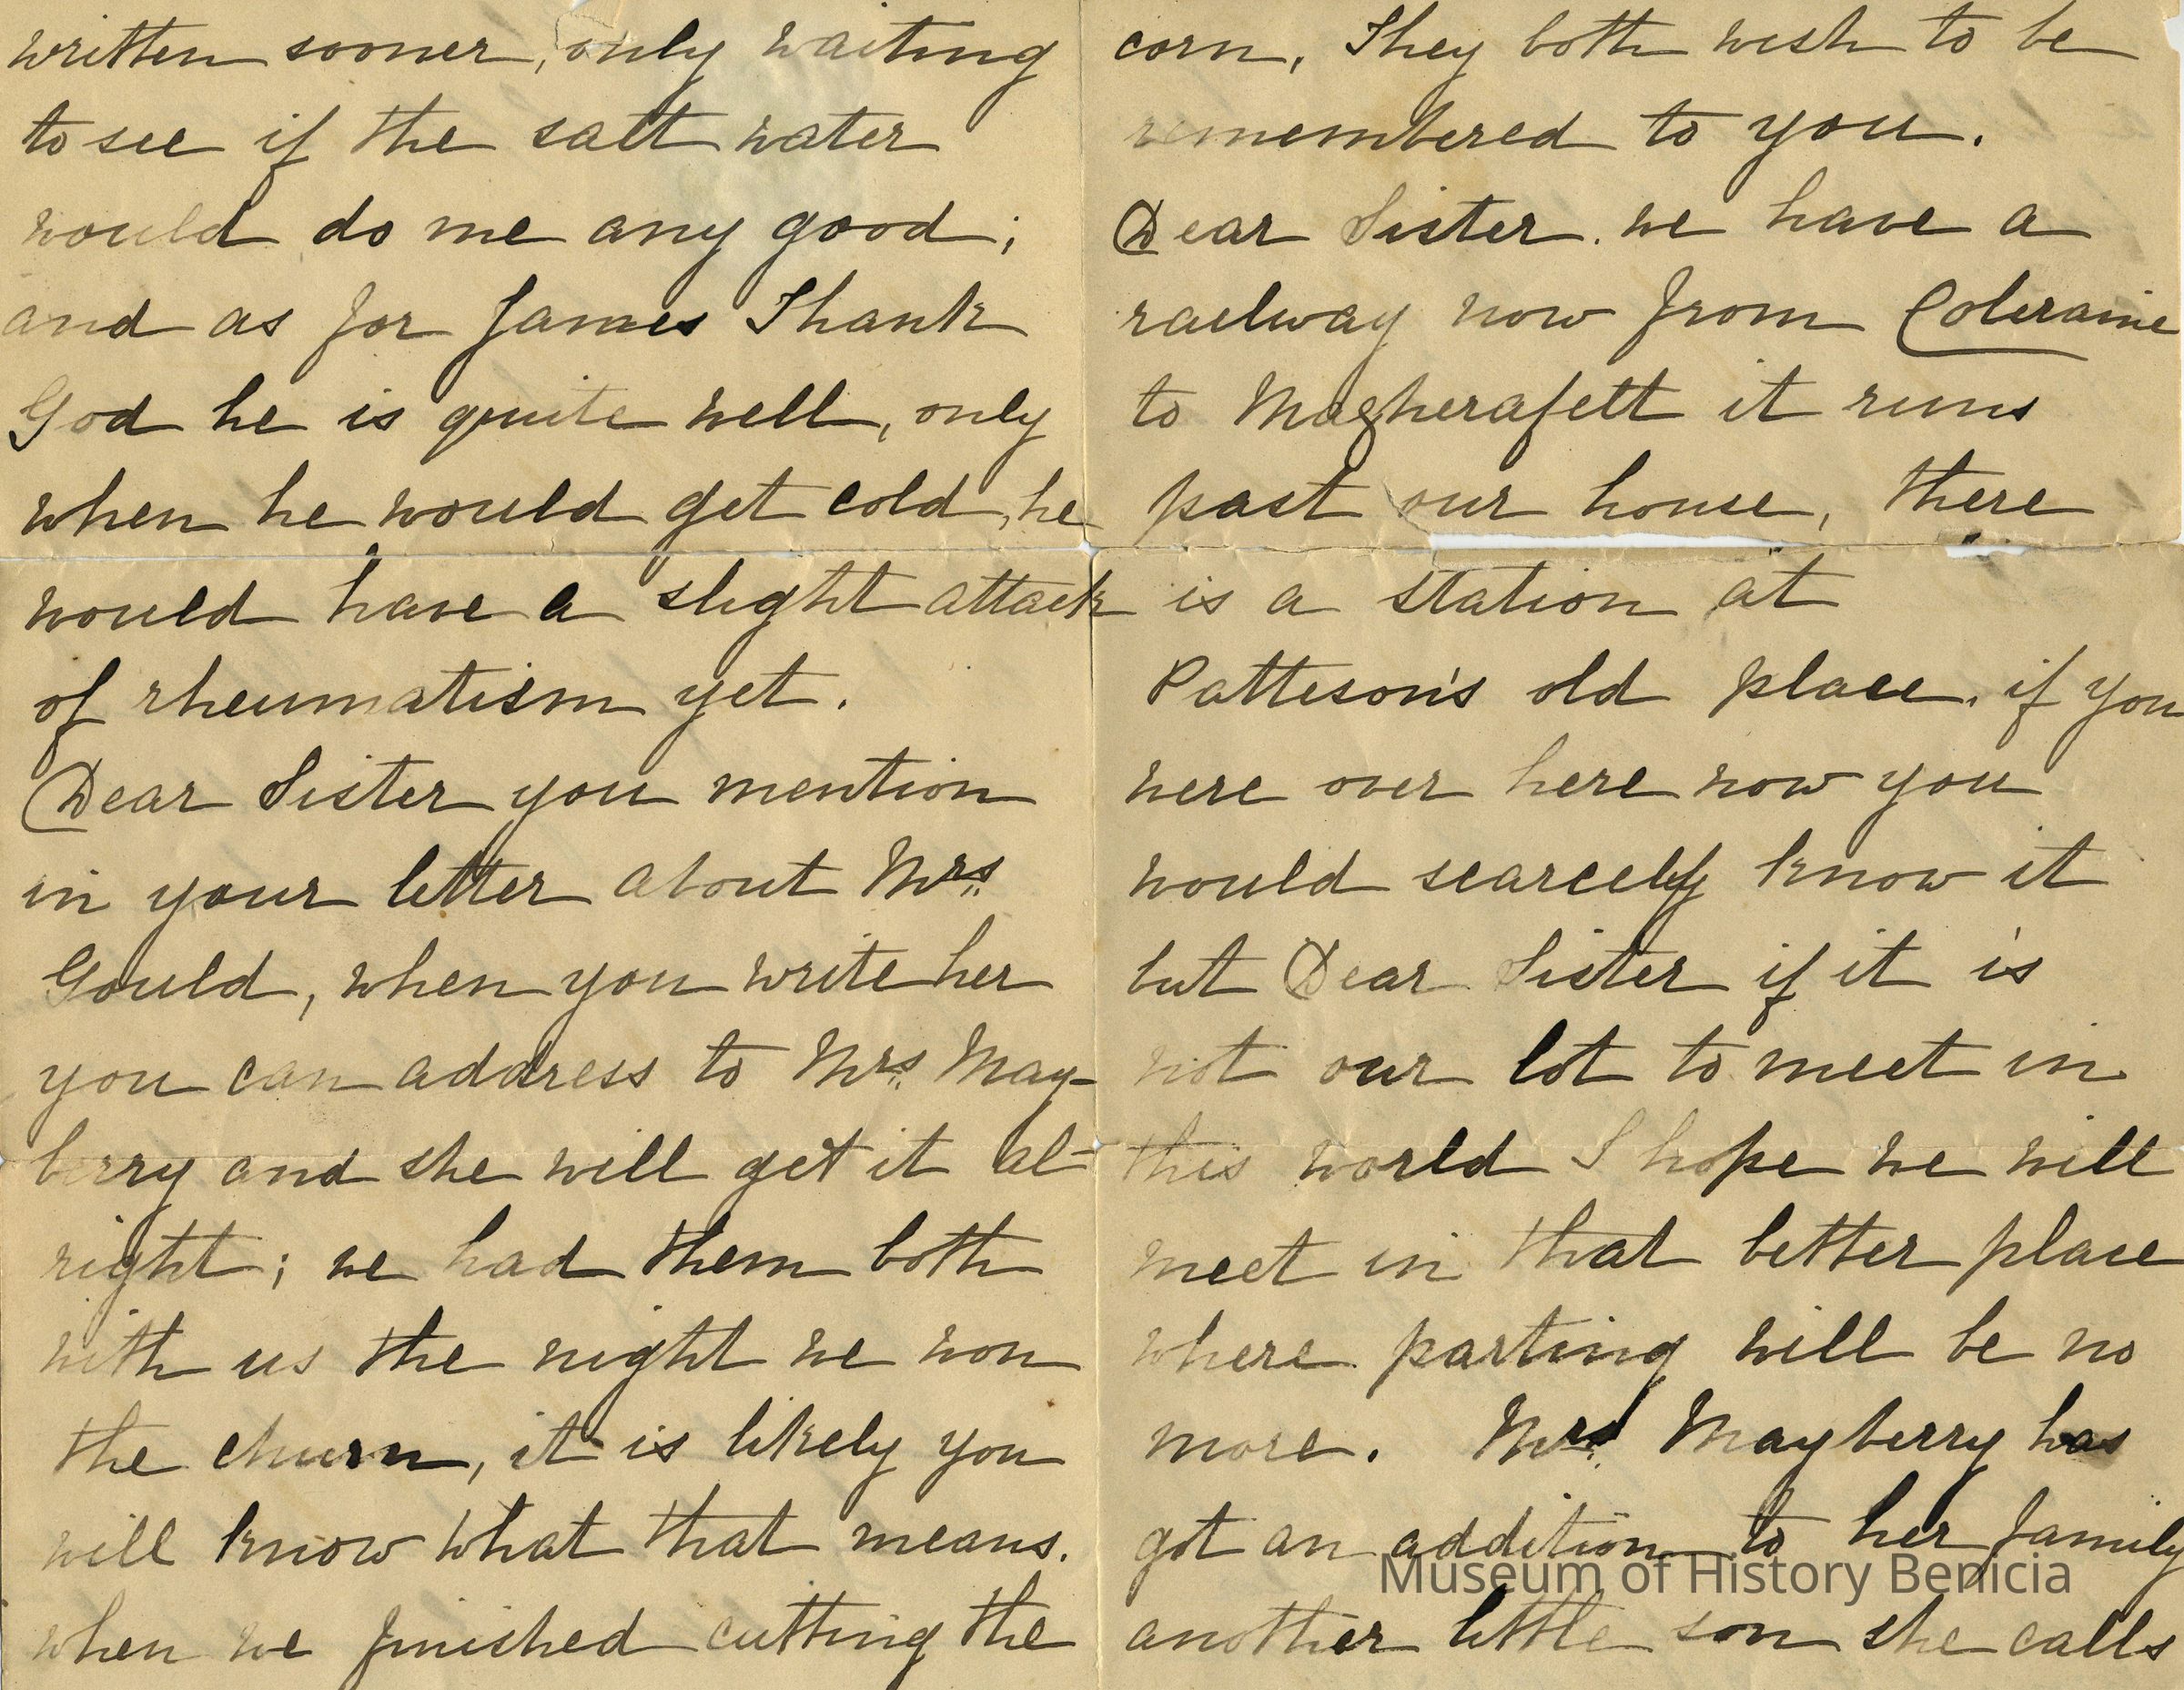 written sooner, only waiting
to see if the salt water
would do me any good;
and as for James Thank
God he is quite well, only
when he would get cold, he
would have a slight attack
of rheumatism yet.
Dear Sister you mention
in your letter about Mrs.
Gould, when you write her
you can address to Mrs. May-
berry and she will get it al-
right; we had them both
with us the night we won
the churn, it is likely you
will know what that means.
when we finished cutting the
corn, They both wish to be
remembered to you.
Dear Sister. we have a
railway now from Coleraine
to Magherafelt it runs
past our house, there
is a station at
Patteson's old place. if you
were over here now you
would scarcely know it
but Dear Sister if it is
not our lot to meet in
this world I hope we will
meet in that better place
where parting will be no
more. Mrs. Mayberry has
got an addition to her family
another little son she calls
Museum of History Benicia